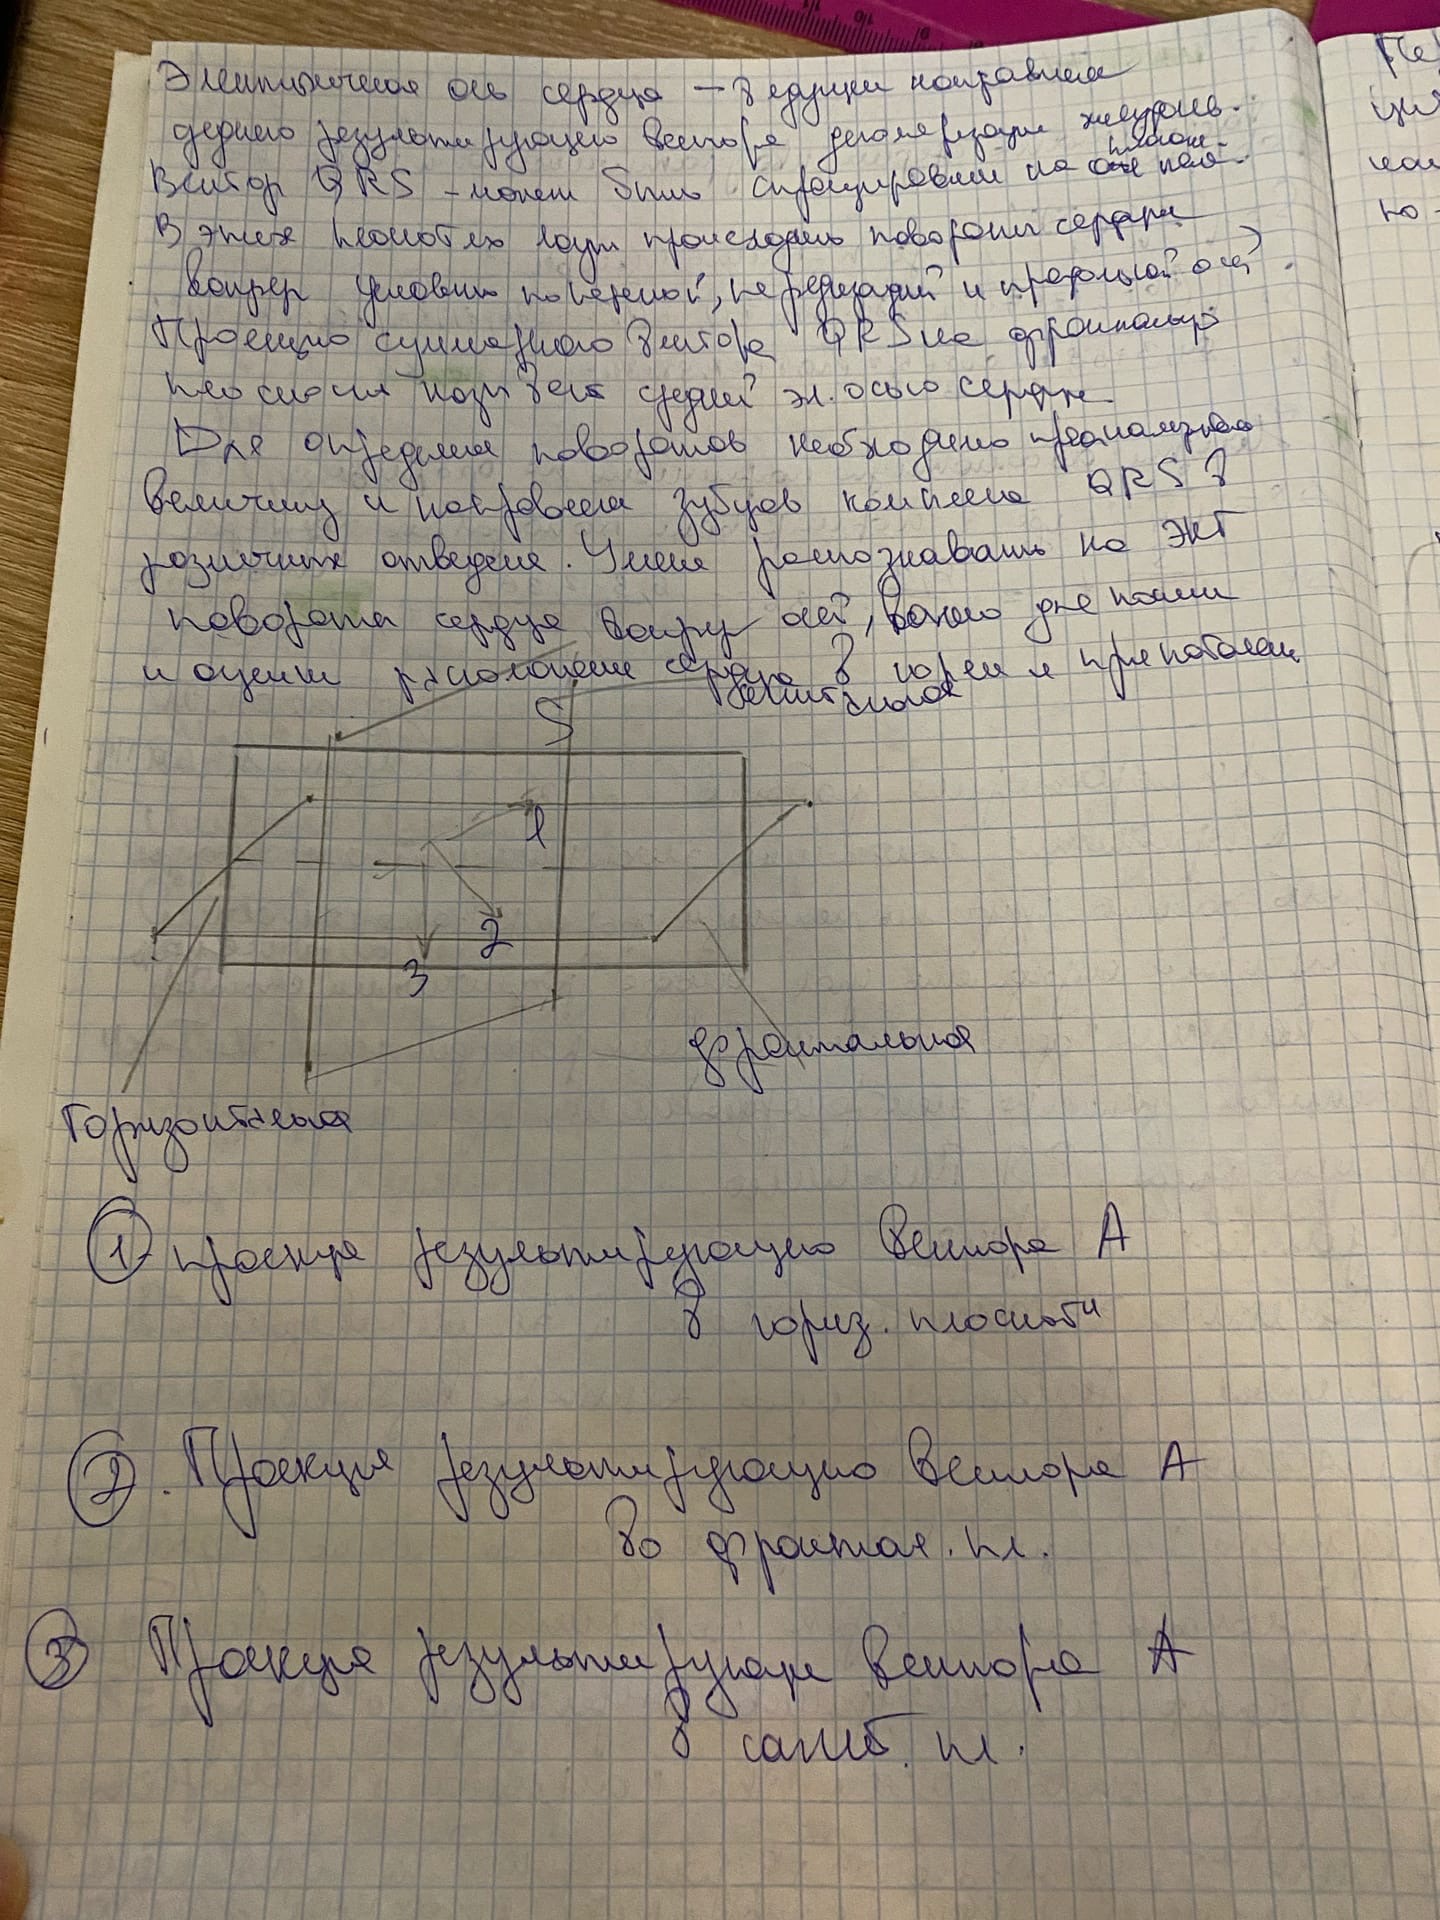 Электрическая ось сердца – ведущее направление
среднего результирующего вектора деполяризации желудочков.
Вектор QRS – может быть спроецирован на плоскос
В этих плоскостях могут происходить повороты сердца
вокруг условных поперечной, переднезадней и продольной осей
Проекцию суммарного вектора QRS на фронтальную
плоскость называют средней эл. осью сердца
Для определения поворотов необходимо проанализировать
величину и направления зубцов комплекса QRS в
различных отведения. Умение распознавать на ЭКГ
поворота сердца вокруг осей, важно для понимания
и оценки расположение сердца в норме и при патологии
сагиттальная
S
1
2
3
фронтальная
Горизонтальная
1 – проекция результирующего вектора А
в гориз. плоскости
2. Проекция результирующего вектора А
во фронтал. пл.
3 Проекция результирующего вектора А
в сагит. пл.